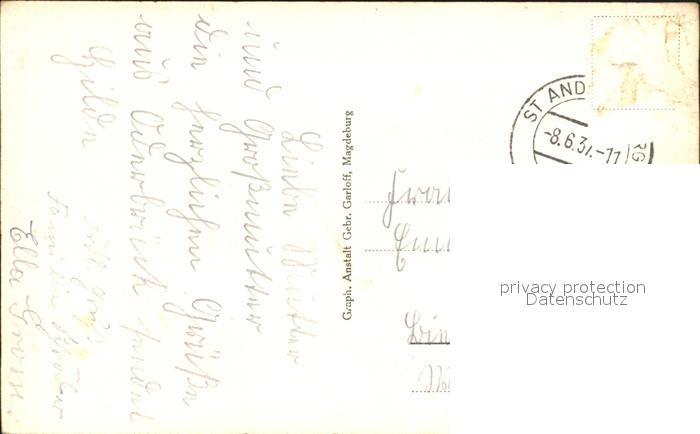 Liebe Mutter
und Großmutter
die herzlichen Grüße
aus Oderbrück sendet
Hilde
Familie
Ella Grosse.
Graph. Anstalt Gebr. Garloff, Magdeburg
ST AND
-8.6.37.-11
privacy protection
Datenschutz